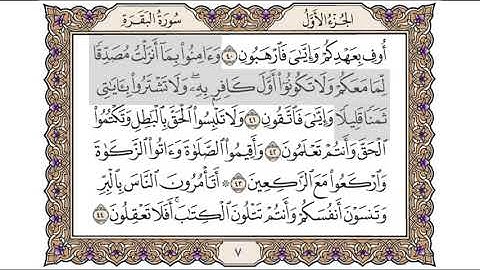 الجزء الأول
سورة البقرة
أُوفِ بِعَهْدِكُمْ وَإِيَّٰيَ فَٱرْهَبُونِ ٤٠ وَءَامِنُوا۟ بِمَآ أَنزَلْتُ مُصَدِّقًا
لِّمَا مَعَكُمْ وَلَا تَكُونُوٓا۟ أَوَّلَ كَافِرٍۭ بِهِۦ ۖ وَلَا تَشْتَرُوا۟ بِـَٔايَٰتِى
ثَمَنًا قَلِيلًا وَإِيَّٰيَ فَٱتَّقُونِ ٤١ وَلَا تَلْبِسُوا۟ ٱلْحَقَّ بِٱلْبَٰطِلِ وَتَكْتُمُوا۟
ٱلْحَقَّ وَأَنتُمْ تَعْلَمُونَ ٤٢ وَأَقِيمُوا۟ ٱلصَّلَوٰةَ وَءَاتُوا۟ ٱلزَّكَوٰةَ
وَٱرْكَعُوا۟ مَعَ ٱلرَّٰكِعِينَ ٤٣ ۞ أَتَأْمُرُونَ ٱلنَّاسَ بِٱلْبِرِّ
وَتَنسَوْنَ أَنفُسَكُمْ وَأَنتُمْ تَتْلُونَ ٱلْكِتَٰبَ ۚ أَفَلَا تَعْقِلُونَ ٤٤
٧